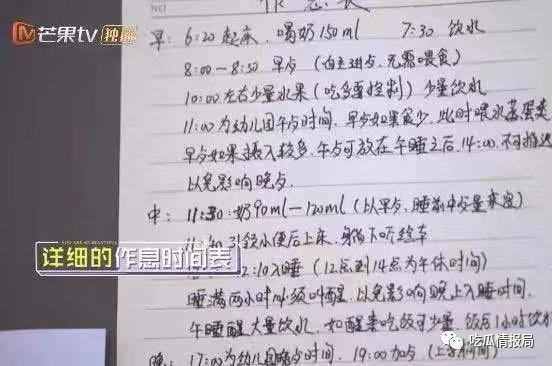 芒果tv 独播
NO
作息表
早: 6:20起床、喝奶150ml 7:30 饮水
8:00-8:30 早点 (自主进点,无需喂食)
10:00左右少量水果 (吃多要控制) 少量饮水
11:00为幼儿园午点时间,早点如果食少,此时喂水蒸蛋类
早点如果摄入较多,午点可放在午睡之后,14:00,不可推迟
以免影响晚点。
中: 11:30:奶90ml-120ml (以早点、睡前中食量来定)
11:40 引领小便后上床,
YOU ARE SO BEAUTIFUL
详细的作息时间表
12:10入睡 (12点到14点为午休时间)
睡满两小时必须叫醒,以免影响晚上入睡时间,
午睡醒大量饮水,如醒来吃饭可少量,饭后1小时饮水
晚: 17:00为幼儿园晚点时间,19:00加点
吃瓜情报局